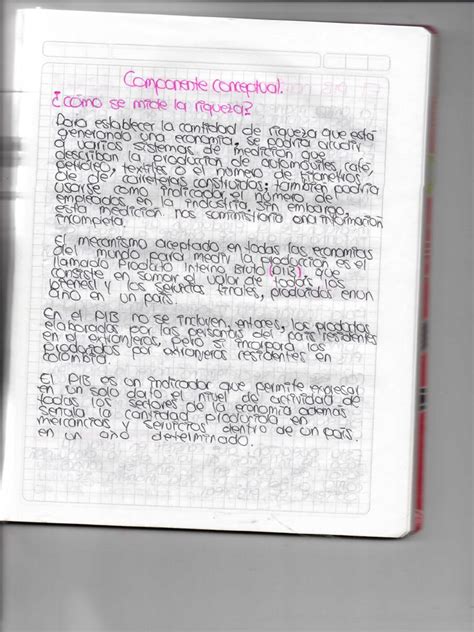 Componente conceptual.
¿cómo se mide la riqueza?
Para establecer la cantidad de riqueza que está
generando una economía, se podría acudir
a varios sistemas de medición que
describan la producción de automóviles, café,
petróleo, textiles o el número de kilómetros
de carreteras construidos; también podría
usarse como indicador el número de
empleados en la industria. Sin embargo,
esta medición nos suministraría una información
incompleta.
El mecanismo aceptado en todas las economías
del mundo para medir la producción es el
llamado Producto Interno Bruto (PIB), que
consiste en sumar el valor de todos los
bienes y los servicios finales, producidos en un
año en un país.
En el PIB no se incluyen, entonces, los productos
elaborados por las personas del país residentes
en el extranjero, pero sí incorpora los
producidos por extranjeros residentes en
Colombia.
El PIB es un indicador que permite expresar
en un solo dato el nivel de actividad de
todos los sectores de la economía además
señala la cantidad producida en
mercancías y servicios dentro de un país.
en un año determinado.